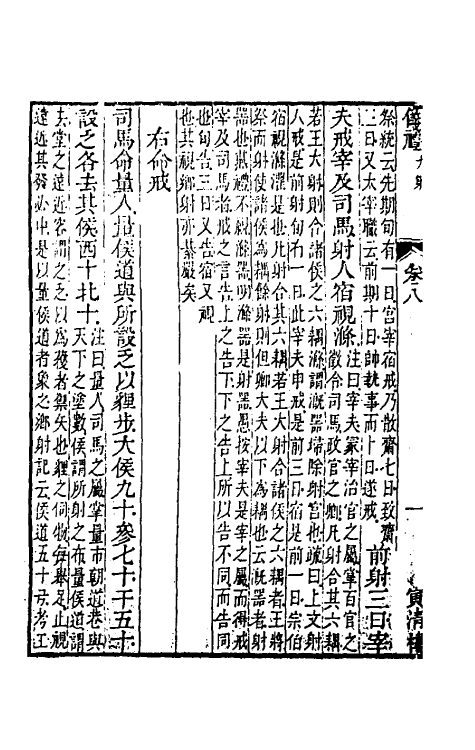 儀禮 大射 卷八 一 寅清樓
祭統云先期旬有一日宮宰宿戒乃散齋七日致齋
三日又太宰職云前期十日帥執事而卜日遂戒
前射三日宰
夫戒宰及司馬射人宿視滌
注曰宰夫冢宰治官之屬掌百官之
徵令司馬政官之卿凡射合其六耦
若王大射則合諸侯之六耦滌謂溉器埽除射宮也疏曰上文射
人戒是前射旬有一日此宰夫申戒是前三日宿是前一日宗伯
宿視滌濯是也凡射合其六耦若王大射合諸侯之六耦者王將
祭而射使諸侯為耦餘射則但卿大夫以下為耦也云溉器者射
器也燕禮不視滌器明滌器是射器愚按宰夫是宰之屬而得戒
宰及司馬者戒之言告上之告下下之告上所以告不同而告同
也旬告三日又告宿又視
也其視鄉射亦綦嚴矣
右命戒
司馬命量人量侯道與所設乏以貍步大侯九十參七十干五十
設乏各去其侯西十北十
注曰量人司馬之屬掌量市朝道巷與
天下之塗數侯謂所射之布量侯道謂
去堂之遠近容謂之乏以為獲者禦矢也貍之伺物每舉足止視
遠近其發必中是以量侯道者象之鄉射記云侯道五十弓考工